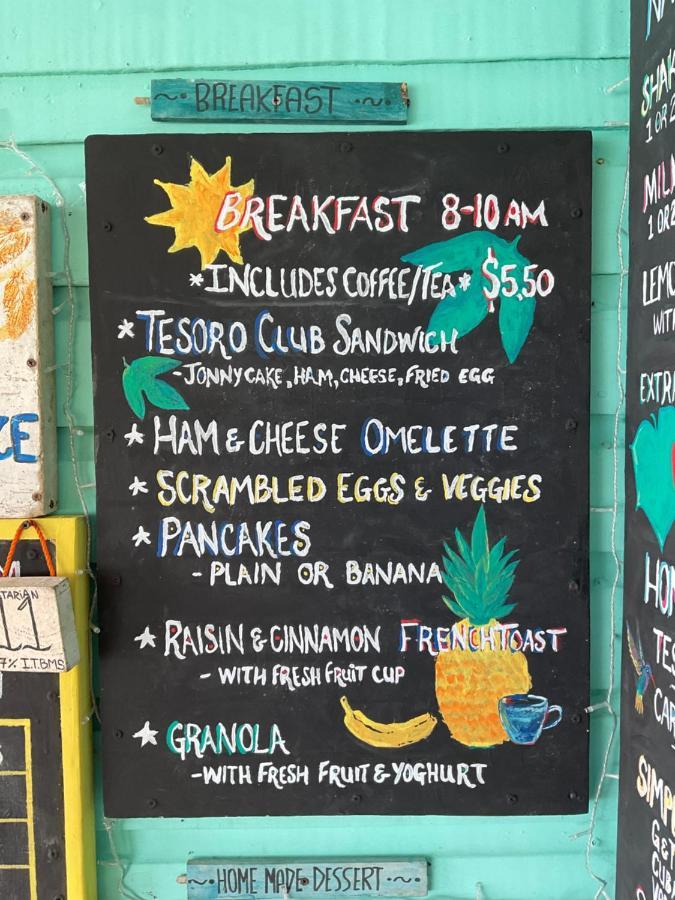 ~• BREAKFAST •~
BREAKFAST 8-10 AM
*INCLUDES COFFEE/TEA* $5,50
* TESORO CLUB SANDWICH
-JONNYCAKE, HAM, CHEESE, FRIED EGG
* HAM & CHEESE OMELETTE
* SCRAMBLED EGGS & VEGGIES
* PANCAKES
- PLAIN OR BANANA
* RAISIN & CINNAMON FRENCHTOAST
- WITH FRESH FRUIT CUP
* GRANOLA
-WITH FRESH FRUIT & YOGHURT
~• HOME MADE DESSERT •~
7% I.T.B.M.S
1 OR
1 OR
WITH